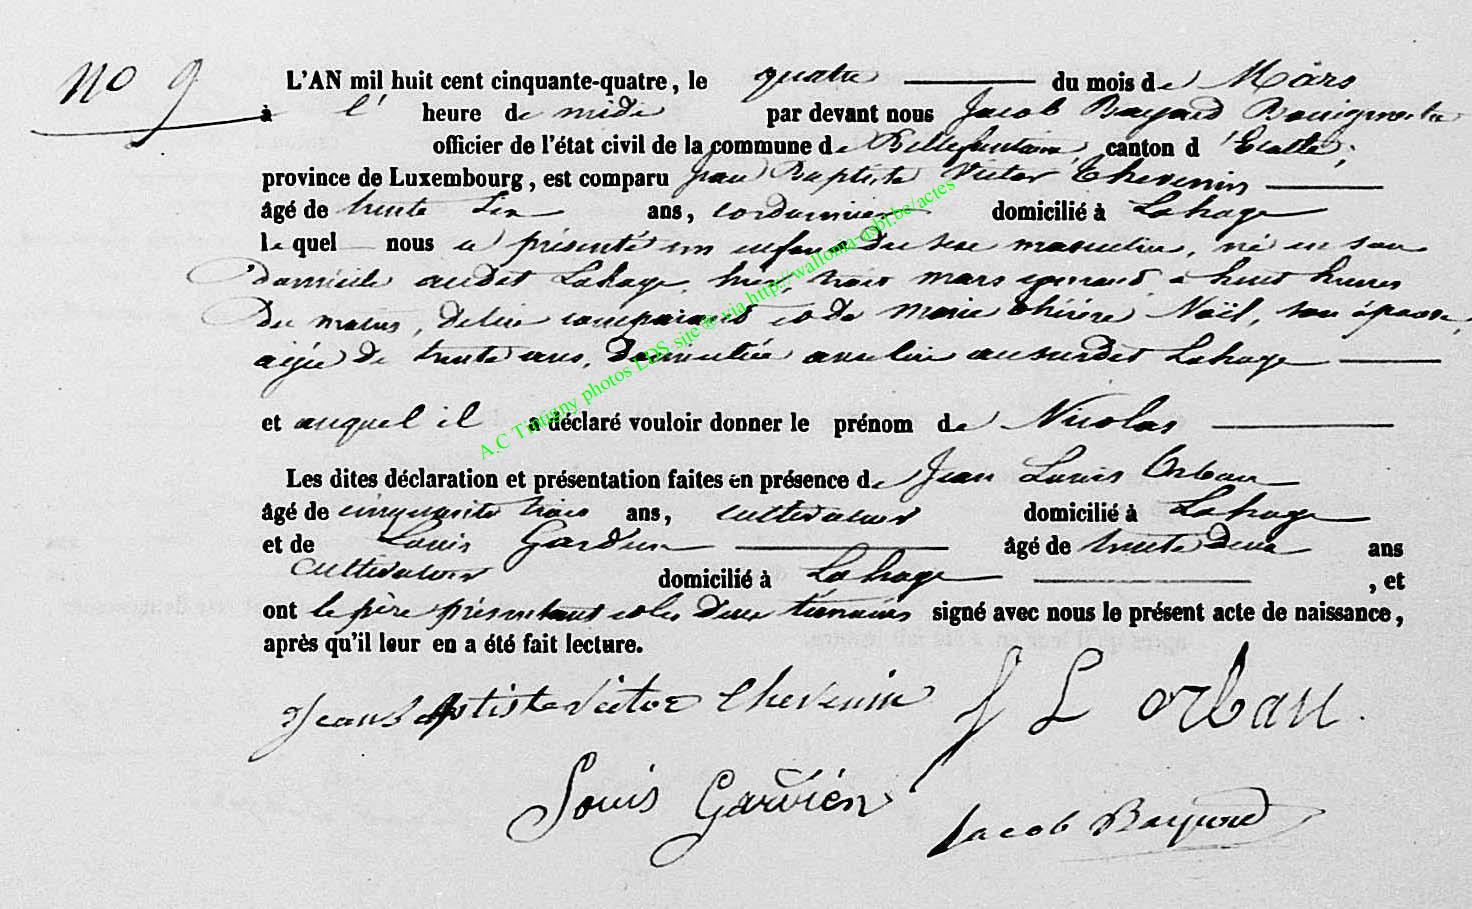 No 9
L'AN mil huit cent cinquante-quatre, le quatre du mois de Mars
à l' heure de midi par devant nous Jacob Bayard Bourgmestre
officier de l'état civil de la commune de Bellefontaine, canton d'Etalle,
province de Luxembourg, est comparu Jean Baptiste Victor Thevenin
âgé de trente six ans, cordonnier domicilié à Lahage
lequel nous a présenté un enfant du sexe masculin, né en son
domicile audit Lahage, hier, trois mars courant, à huit heures
du matin, de lui comparant et de Marie Thérèse Noël, son épouse,
agée de trente ans, domiciliée avec lui au susdit Lahage
et auquel il a déclaré vouloir donner le prénom de Nicolas
Les dites déclaration et présentation faites en présence de Jean Louis Orban
âgé de cinquante trois ans, cultivateur domicilié à Lahage
et de Louis âgé de trente deux ans
cultivateur domicilié à Lahage, et
ont le père présentant et les deux témoins signé avec nous le présent acte de naissance,
après qu'il leur en a été fait lecture.
Jean Baptiste Victor Thevenin J L Orban.
Louis
Jacob Bayard
A.C Tintigny photos LDS site® via http://wallonia-asbl.be/actes